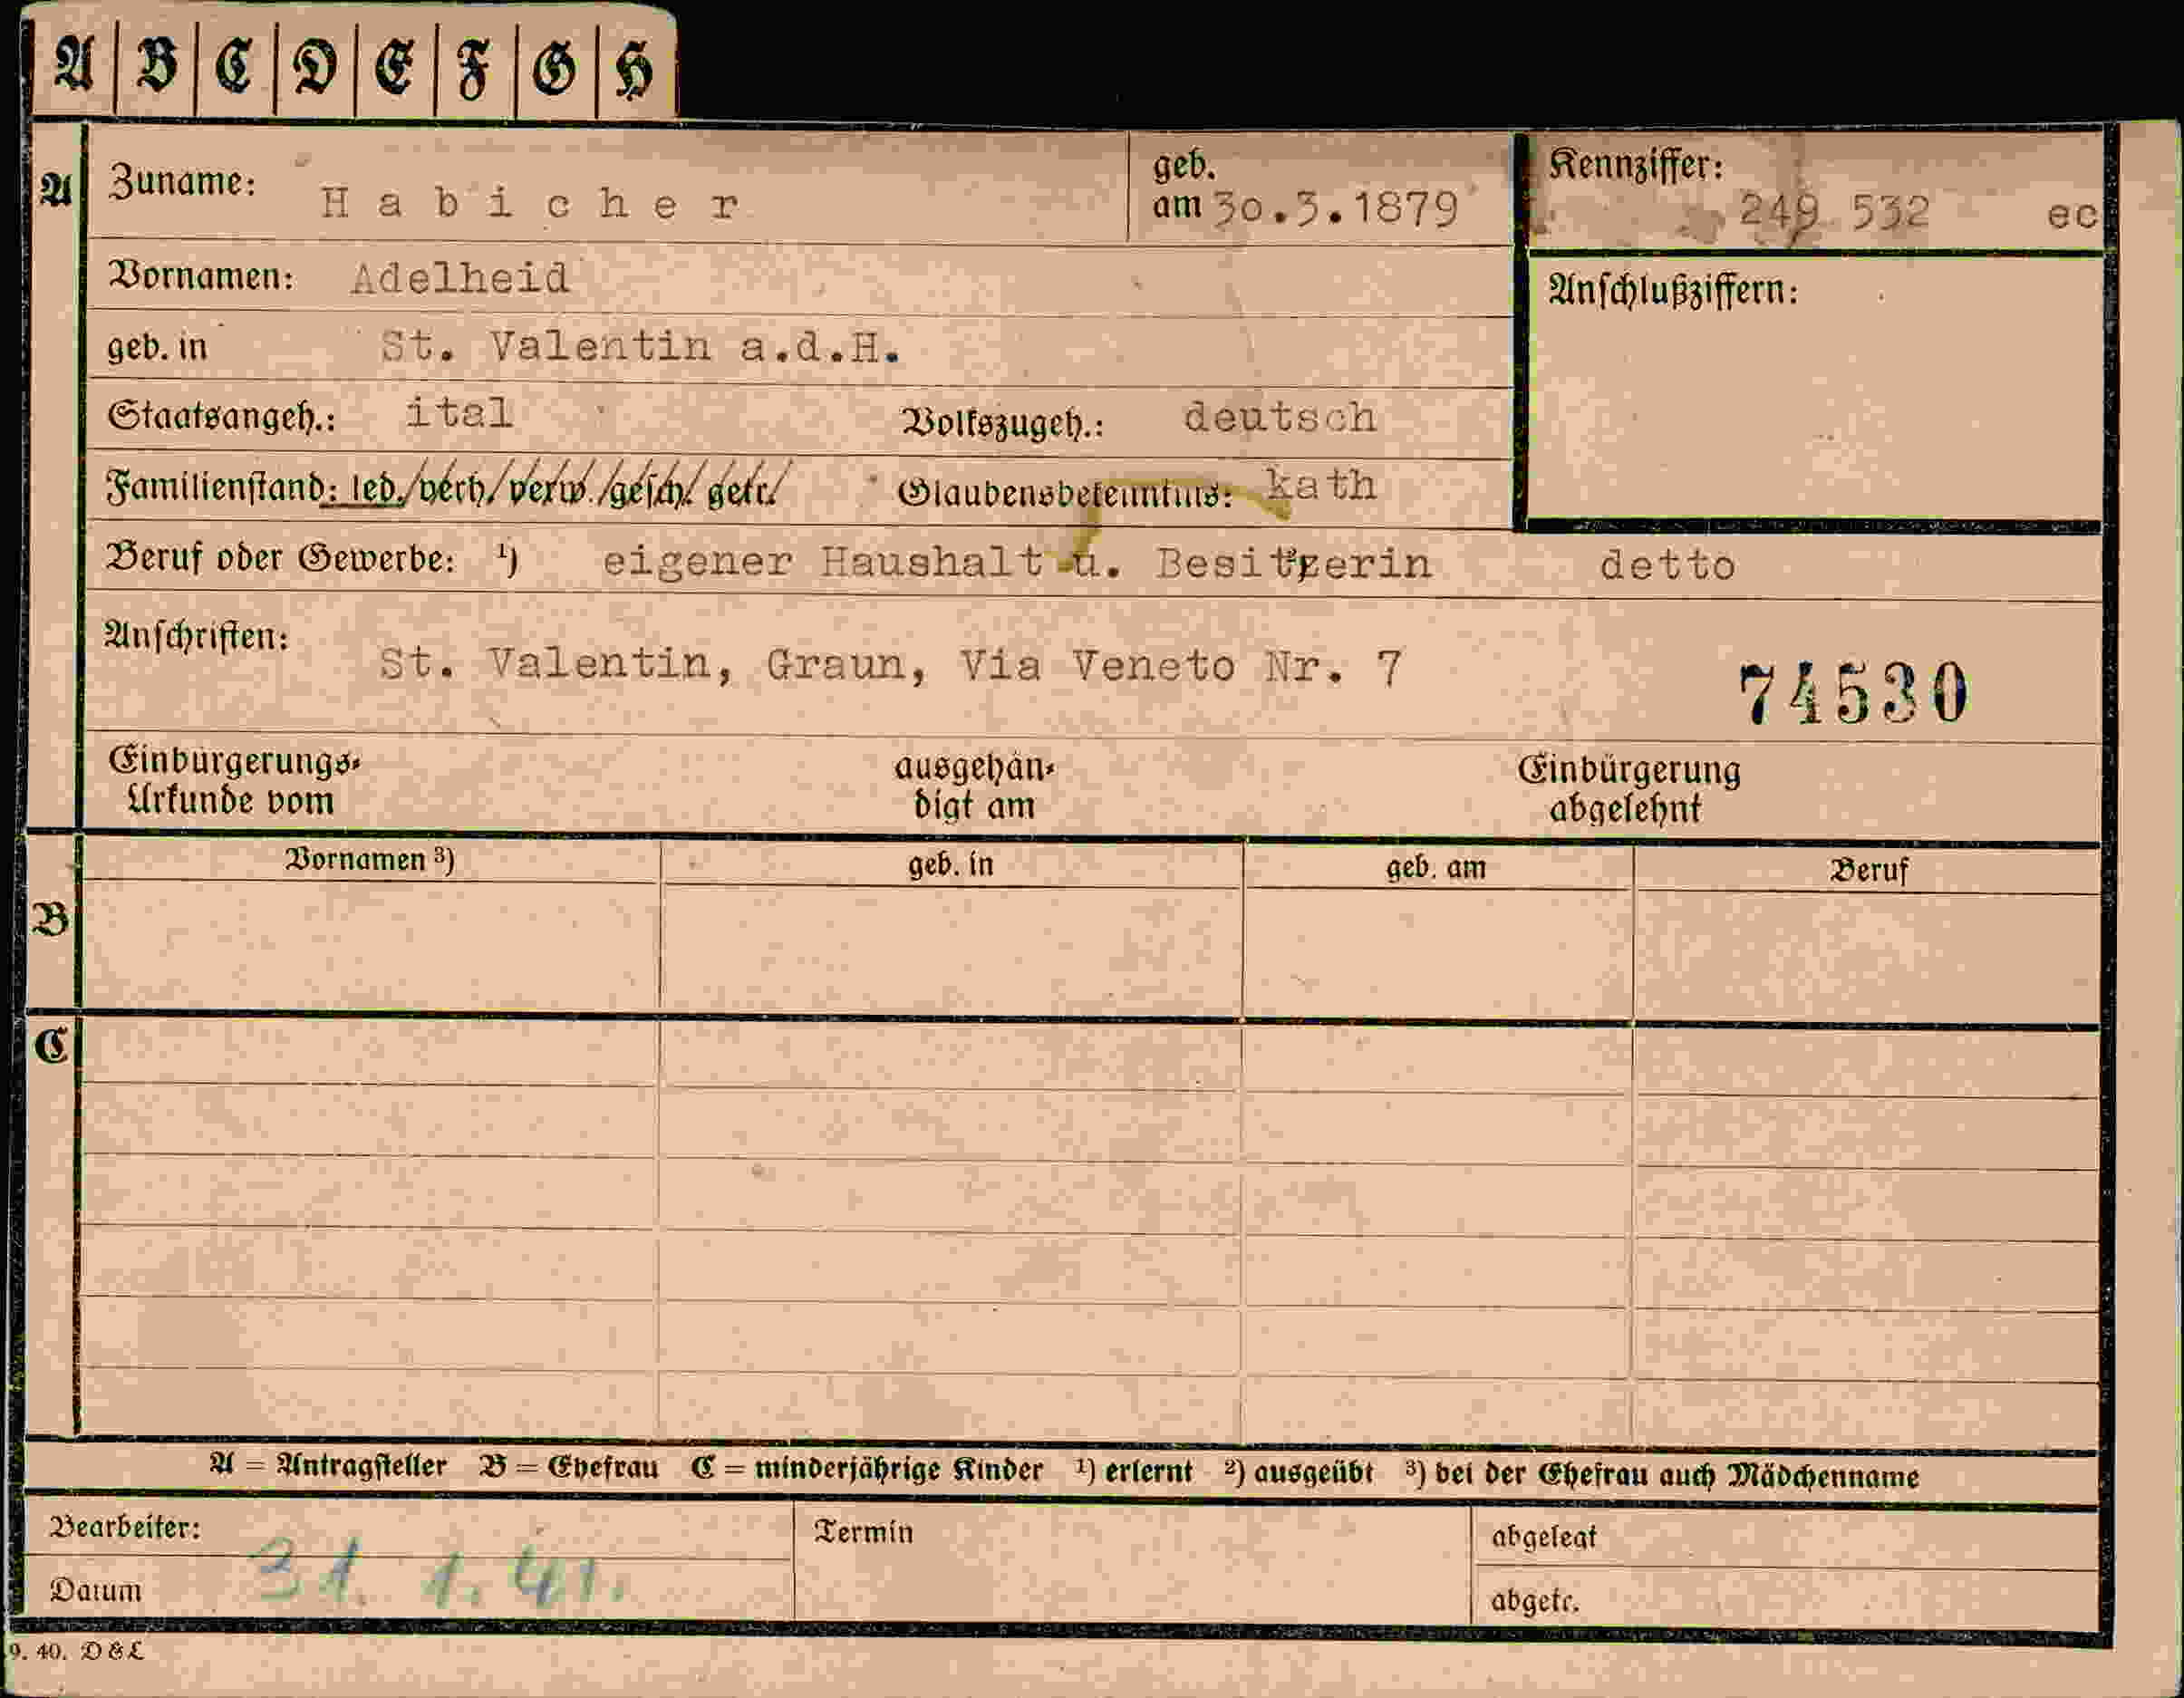 A B C D E F G H
A Zuname: Habicher geb. am 30.3.1879 Kennziffer: 249 532 ec
Vornamen: Adelheid Anschlußziffern:
geb. in St. Valentin a.d.H.
Staatsangeh.: ital Volkszugeh.: deutsch
Familienstand: led./verh./verw./gesch./getr./ Glaubensbekenntnis: kath
Beruf oder Gewerbe: ¹) eigener Haushalt u. Besitzerin detto
Anschriften: St. Valentin, Graun, Via Veneto Nr. 7 74530
Einbürgerungs- ausgehän- Einbürgerung
Urkunde vom digt am abgelehnt
Vornamen ³) geb. in geb. am Beruf
B
C
A = Antragsteller B = Ehefrau C = minderjährige Kinder ¹) erlernt ²) ausgeübt ³) bei der Ehefrau auch Mädchenname
Bearbeiter: Termin abgelegt
Datum 31. 1. 41. abgetr.
9. 40. D & L